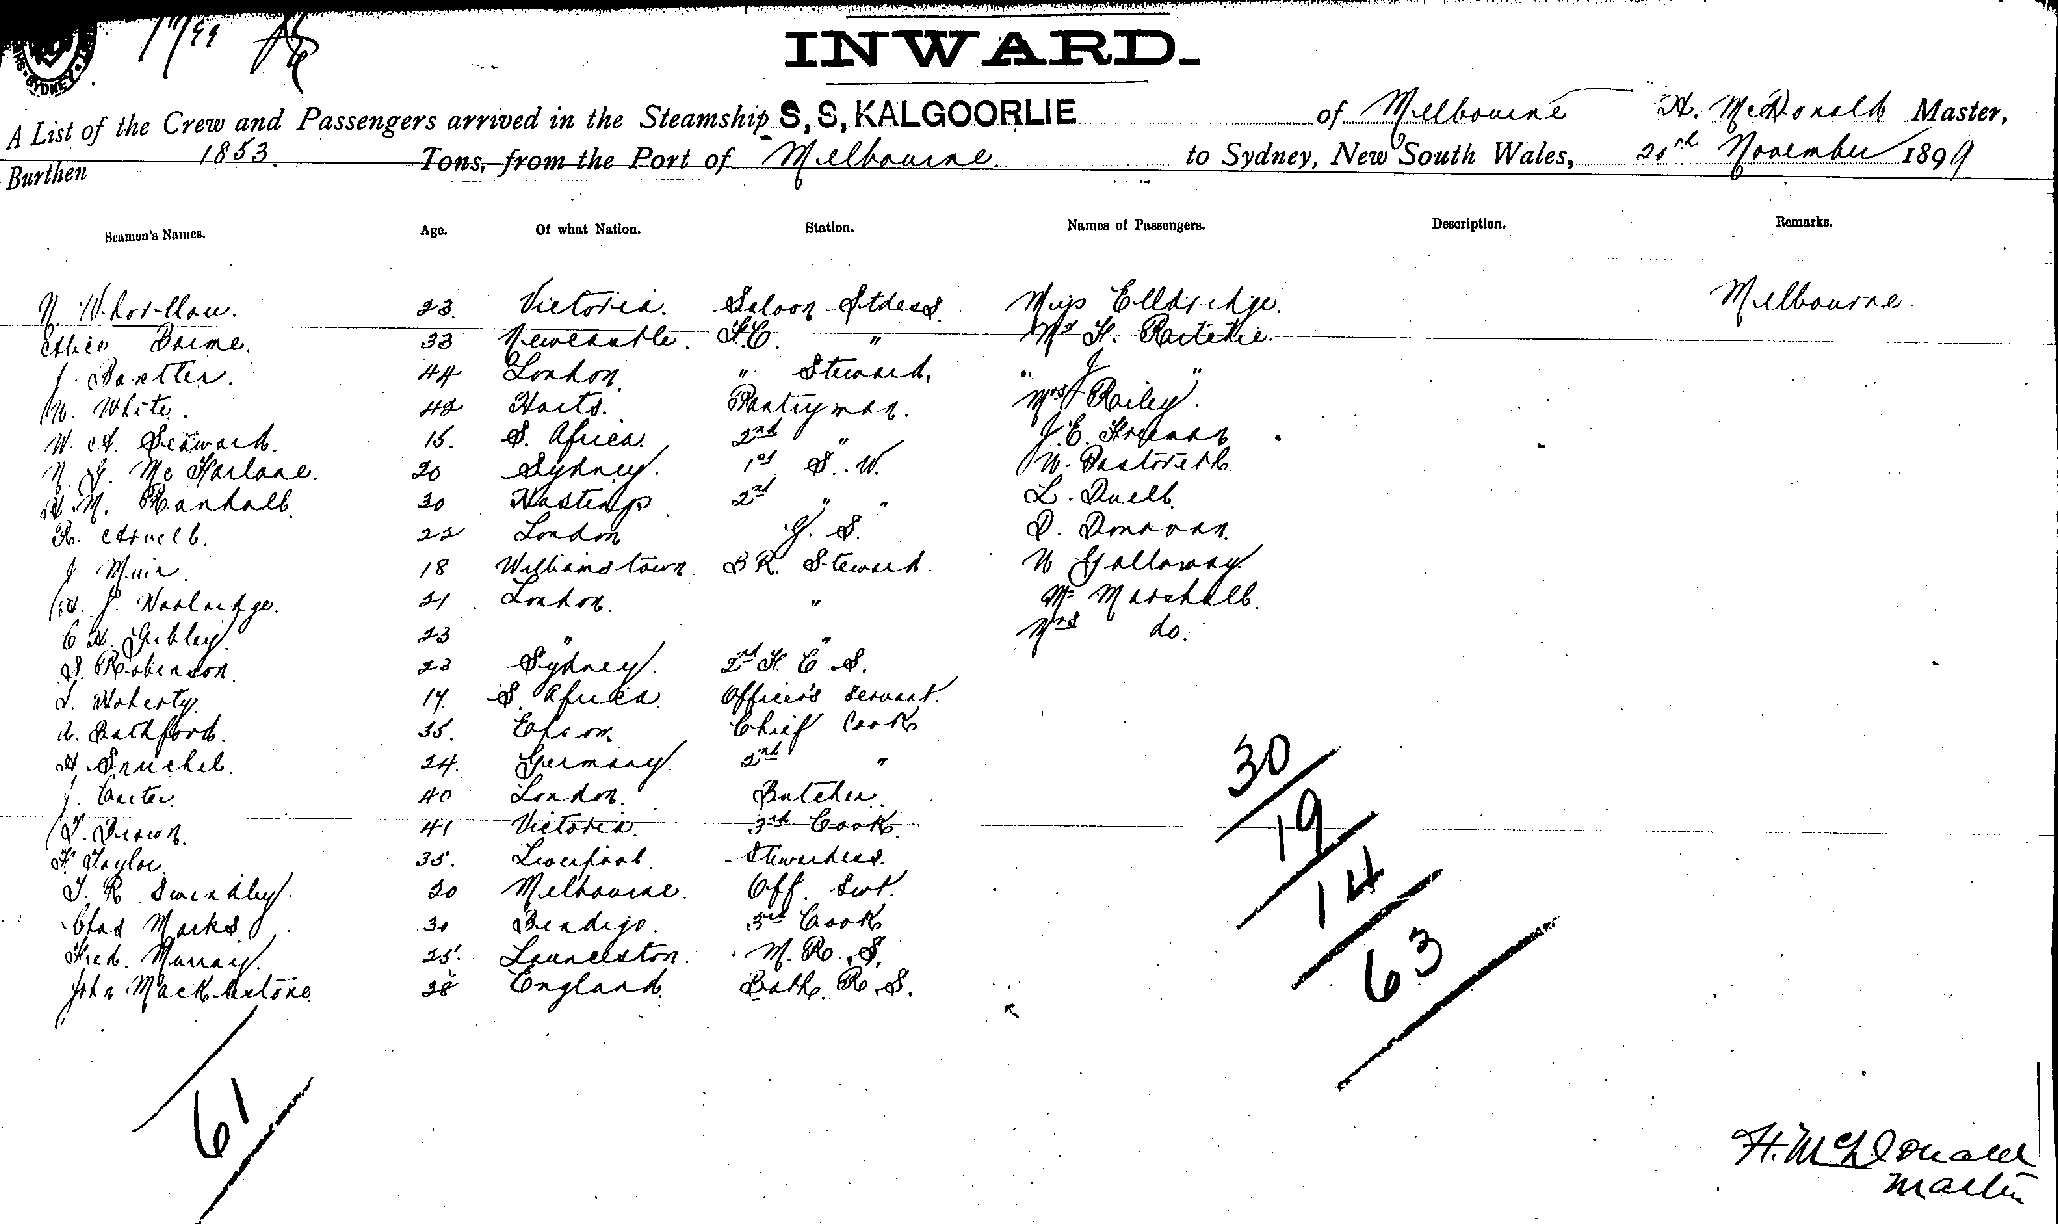 INWARD.
A List of the Crew and Passengers arrived in the Steamship S, S, KALGOORLIE of Melbourne H. McDonald Master,
Burthen 1853. Tons, from the Port of Melbourne. to Sydney, New South Wales, November 1899
Seamen's Names. Age. Of what Nation. Station. Names of Passengers. Description. Remarks.
23. Victoria. Saloon Stdess. Miss Elldridge. Melbourne
33 Newcastle. F.C. " Mr F. Ritchie
44 London. " Steward, " J "
W. White. 42 Harts. Pantryman. Mrs Riley.
W. A. Steward. 15. S. Africa. 2nd " J. E. Freeman
N. J. Mc Farlane. 20 Sydney. 1st S. W. W.
M. Randall. 30 Hastings 2nd " " L. Duell.
22 London J. S. D. Donovan.
J Muir. 18 Williamstown B R. Steward. W Galloway
J. Woolridge. 21 London. " Mr Marshall.
23 " " Mrs do.
S. Robinson. 23 Sydney. 2nd F. C. S.
Doherty. 17. S. Africa. Officers Servant.
Bathford. 35. Epsom. Chief Cook
24. Germany. 2nd "
J. Carter. 40 London. Butcher.
T. Brown. 41 Victoria. 3rd Cook.
F. Taylor. 35. Liverpool. Stewardess.
T. R Swindley 20 Melbourne. Off. Svt.
Chas Marks. 30 Bendigo. Cook
Fred. Murray. 25. Launceston. M. R. S.
John Mackintosh 28 England. Bath. R. S.
30
19
14
63
61
H. McDonald
Master